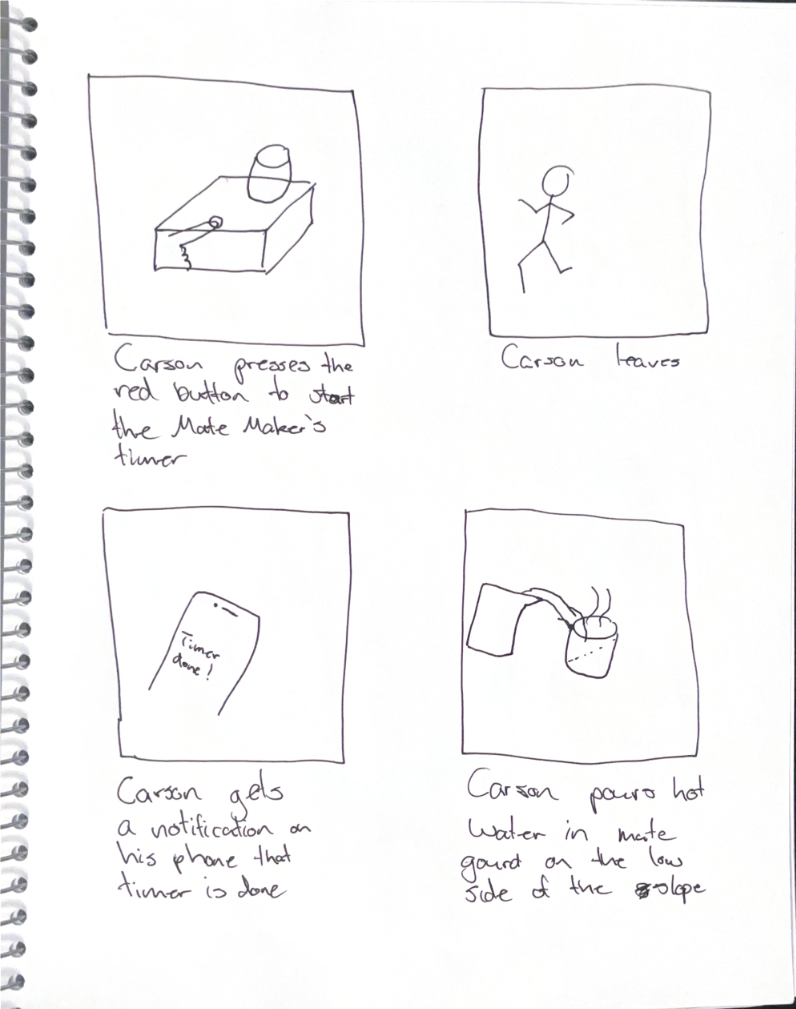 Carson presses the
red button to start
the Mate Maker's
timer
Carson leaves
Timer
done!
Carson gets
a notification on
his phone that
timer is done
Carson pours hot
water in mate
gourd on the low
side of the slope